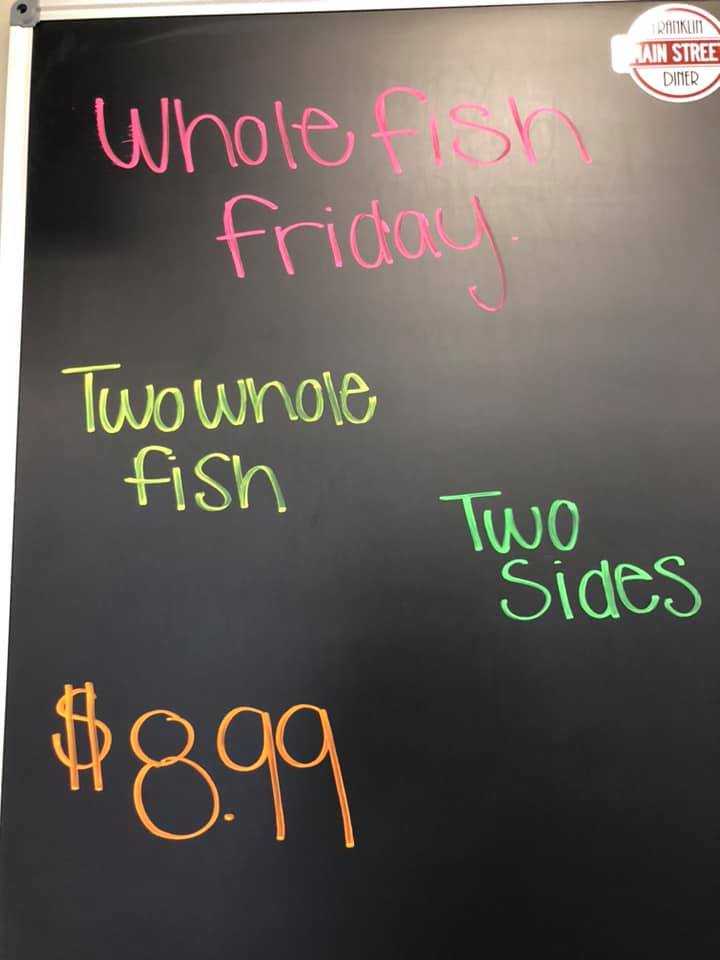 FRANKLIN
MAIN STREET
DINER
Whole fish
friday.
Two whole
fish
Two
Sides
$8.99